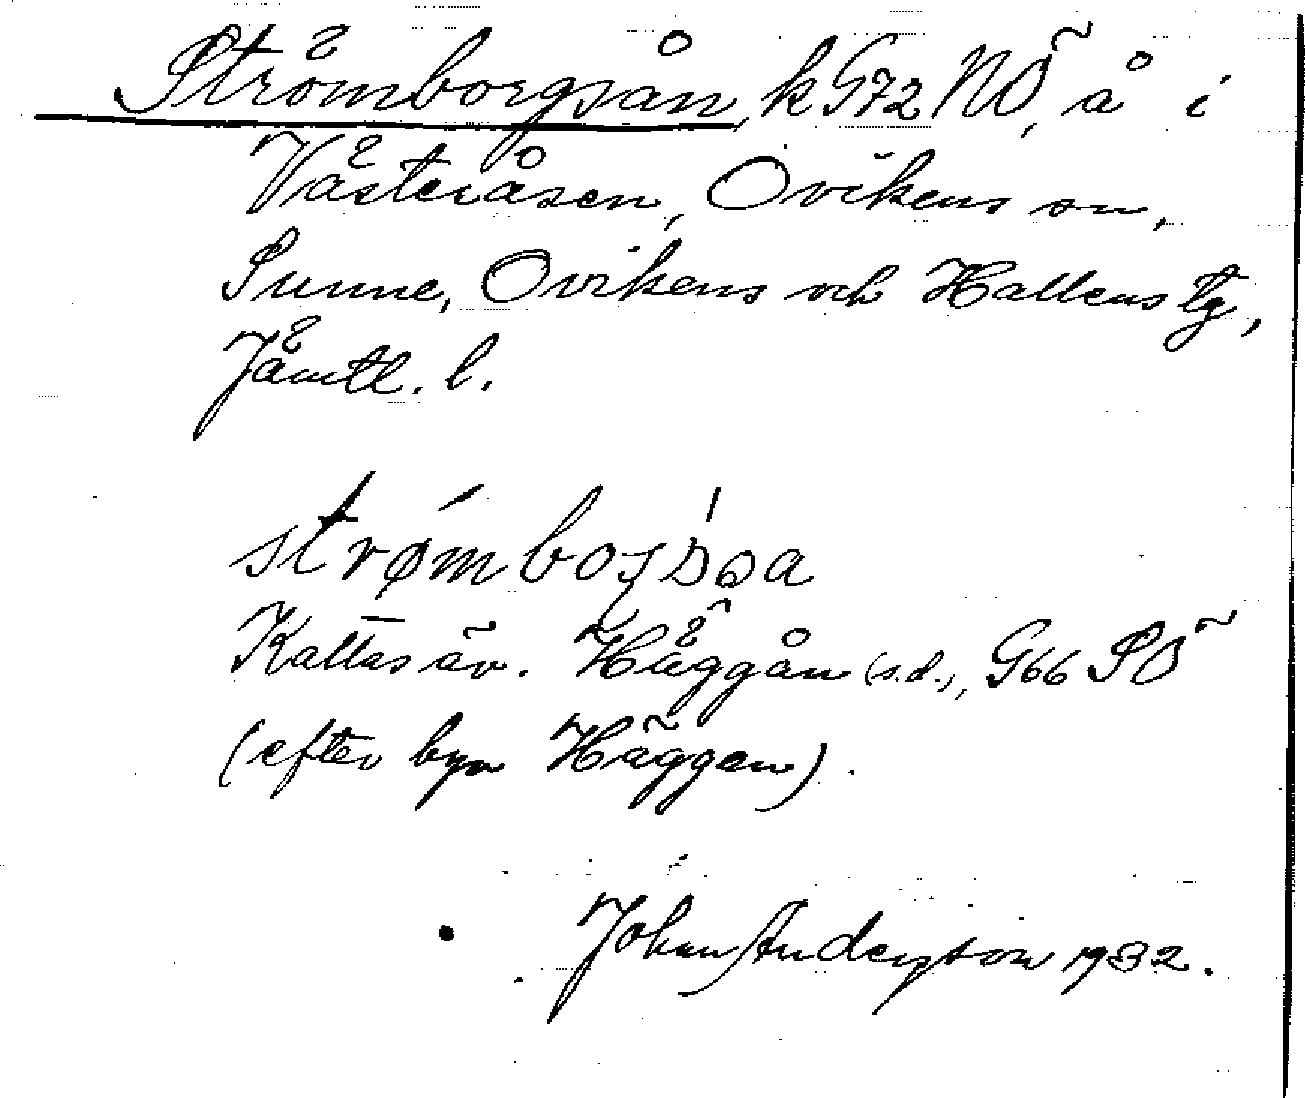 Strömborgsån, k G72 NÖ, å i
Västeråsen, Ovikens sn,
Sunne, Ovikens och Hallens tg,
Jämtl. l.
Kallas äv. Häggån (s.d.), G66 SÖ
(efter byn Häggen).
Johan Anderson 1932.